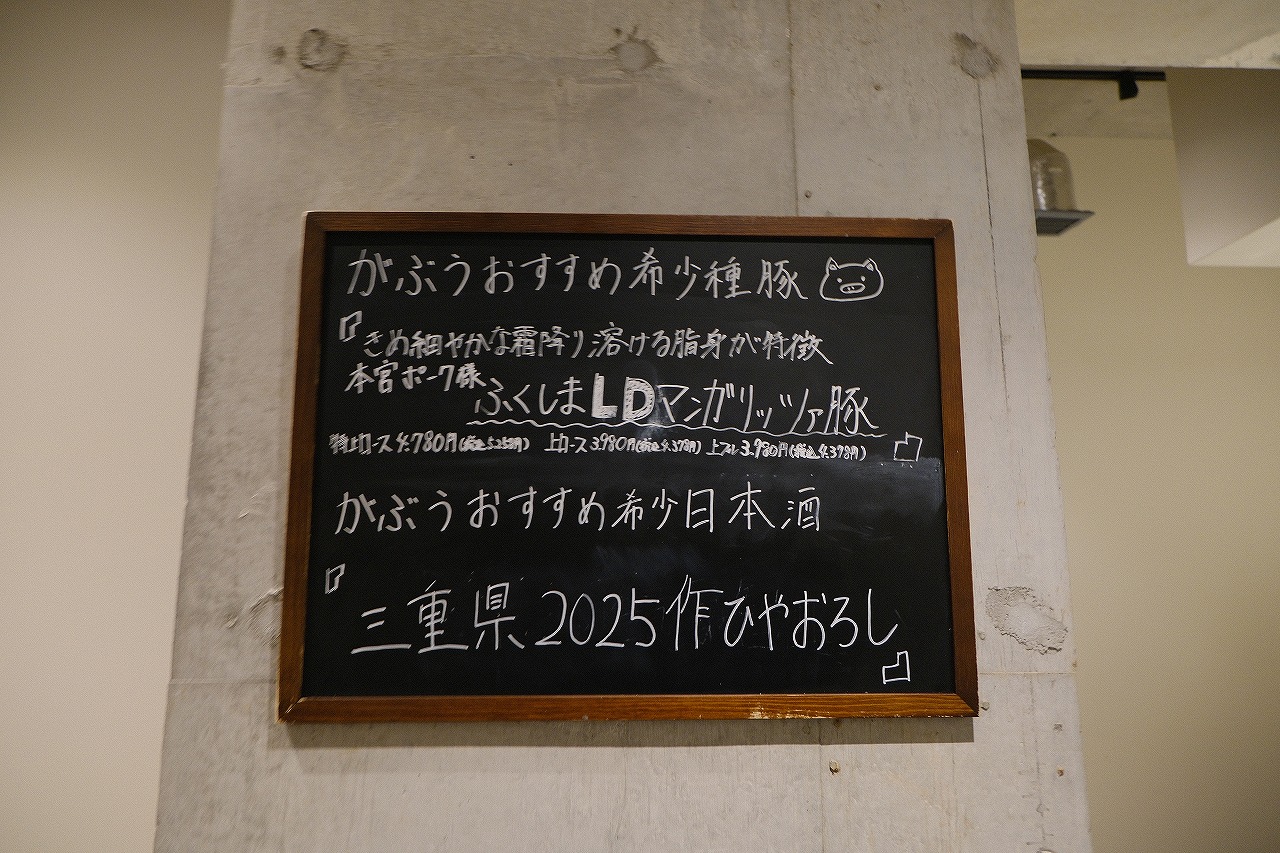 がぶうおすすめ希少種豚
『きめ細やかな霜降り溶ける脂身が特徴
本宮ポーク様 ふくしまLDマンガリッツァ豚
特上ロース4.780円(税込5.258円) 上ロース3.980円(税込4.378円) 上フィレ3.980円(税込4.378円)』
がぶうおすすめ希少日本酒
『三重県2025作ひやおろし』